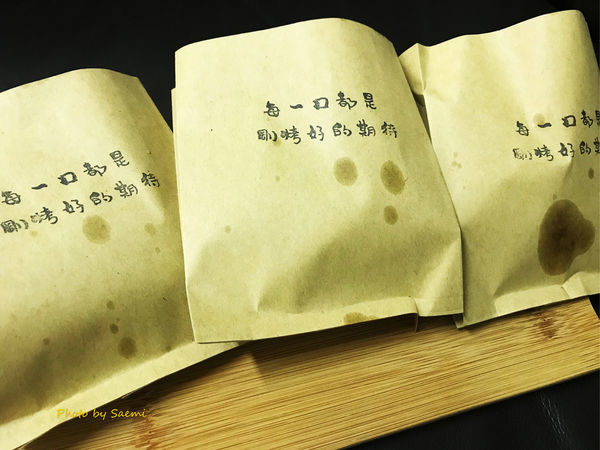 每一口都是
剛烤好的期待
每一口都是
剛烤好的期待
每一口都是
剛烤好的期
Photo by Saemi